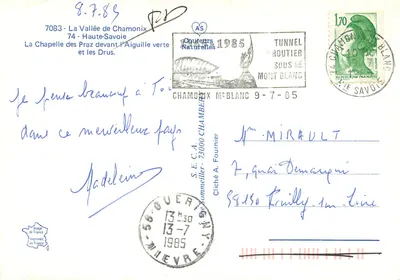 8.7.85
7083 - La Vallée de Chamonix
74 - Haute-Savoie
La Chapelle des Praz devant l'Aiguille verte
et les Drus.
AS
Couleurs
Naturelles
1985
TUNNEL
ROUTIER
SOUS LE
MONT BLANC
CHAMONIX Mt BLANC 9-7-85
1,70
74 CHAMONIX Mt BLANC
HTE SAVOIE
Je pense beaucoup à Toi
dans ce merveilleux pays
Madeleine
S.E.C.A.
73000 CHAMBÉRY
Cliché A. Fournier
Mme MIRAULT
7, quai
58 GUERIGNY
13 H 30
13-7
1985
NIEVRE